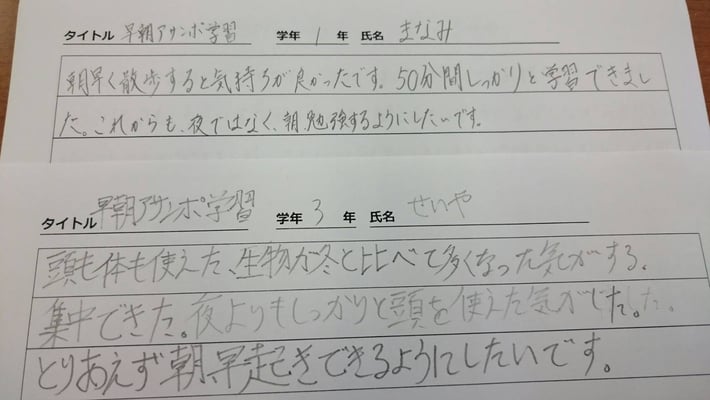 タイトル 早朝アサンポ学習 学年 1 年 氏名 まなみ
朝早く散歩すると気持ちが良かったです。50分間しっかりと学習できまし
た。これからも、夜ではなく、朝、勉強するようにしたいです。
タイトル 早朝アサンポ学習 学年 3 年 氏名 せいや
頭も体も使えた、生物が冬と比べて多くなった気がする。
集中できた。夜よりもしっかりと頭を使えた気がした。
とりあえず朝、早起きできるようにしたいです。